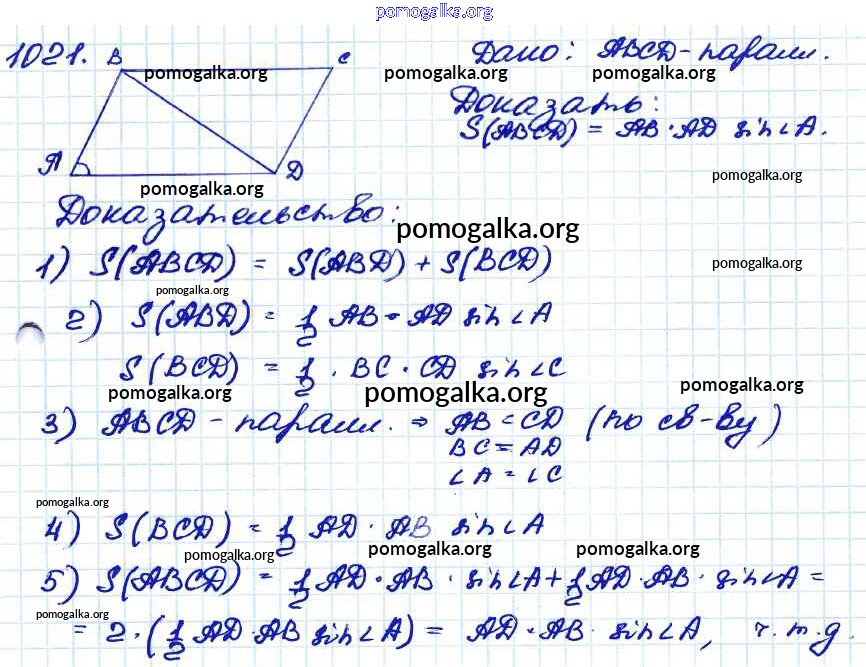 pomogalka.org
1021. B C Дано: ABCD - паралл.
pomogalka.org pomogalka.org pomogalka.org
Доказать:
S(ABCD) = AB · AD sin∠A.
A D
pomogalka.org pomogalka.org
Доказательство:
pomogalka.org
1) S(ABCD) = S(ABD) + S(BCD)
pomogalka.org
pomogalka.org
2) S(ABD) = 1/2 AB · AD sin∠A
S(BCD) = 1/2 · BC · CD sin∠C
pomogalka.org pomogalka.org pomogalka.org
3) ABCD - паралл. ⇒ AB = CD (по св-ву)
BC = AD
∠A = ∠C
pomogalka.org
4) S(BCD) = 1/2 AD · AB sin∠A
pomogalka.org pomogalka.org pomogalka.org
5) S(ABCD) = 1/2 AD · AB · sin∠A + 1/2 AD · AB · sin∠A =
pomogalka.org
= 2 · (1/2 AD · AB sin∠A) = AD · AB · sin∠A, ч.т.д.